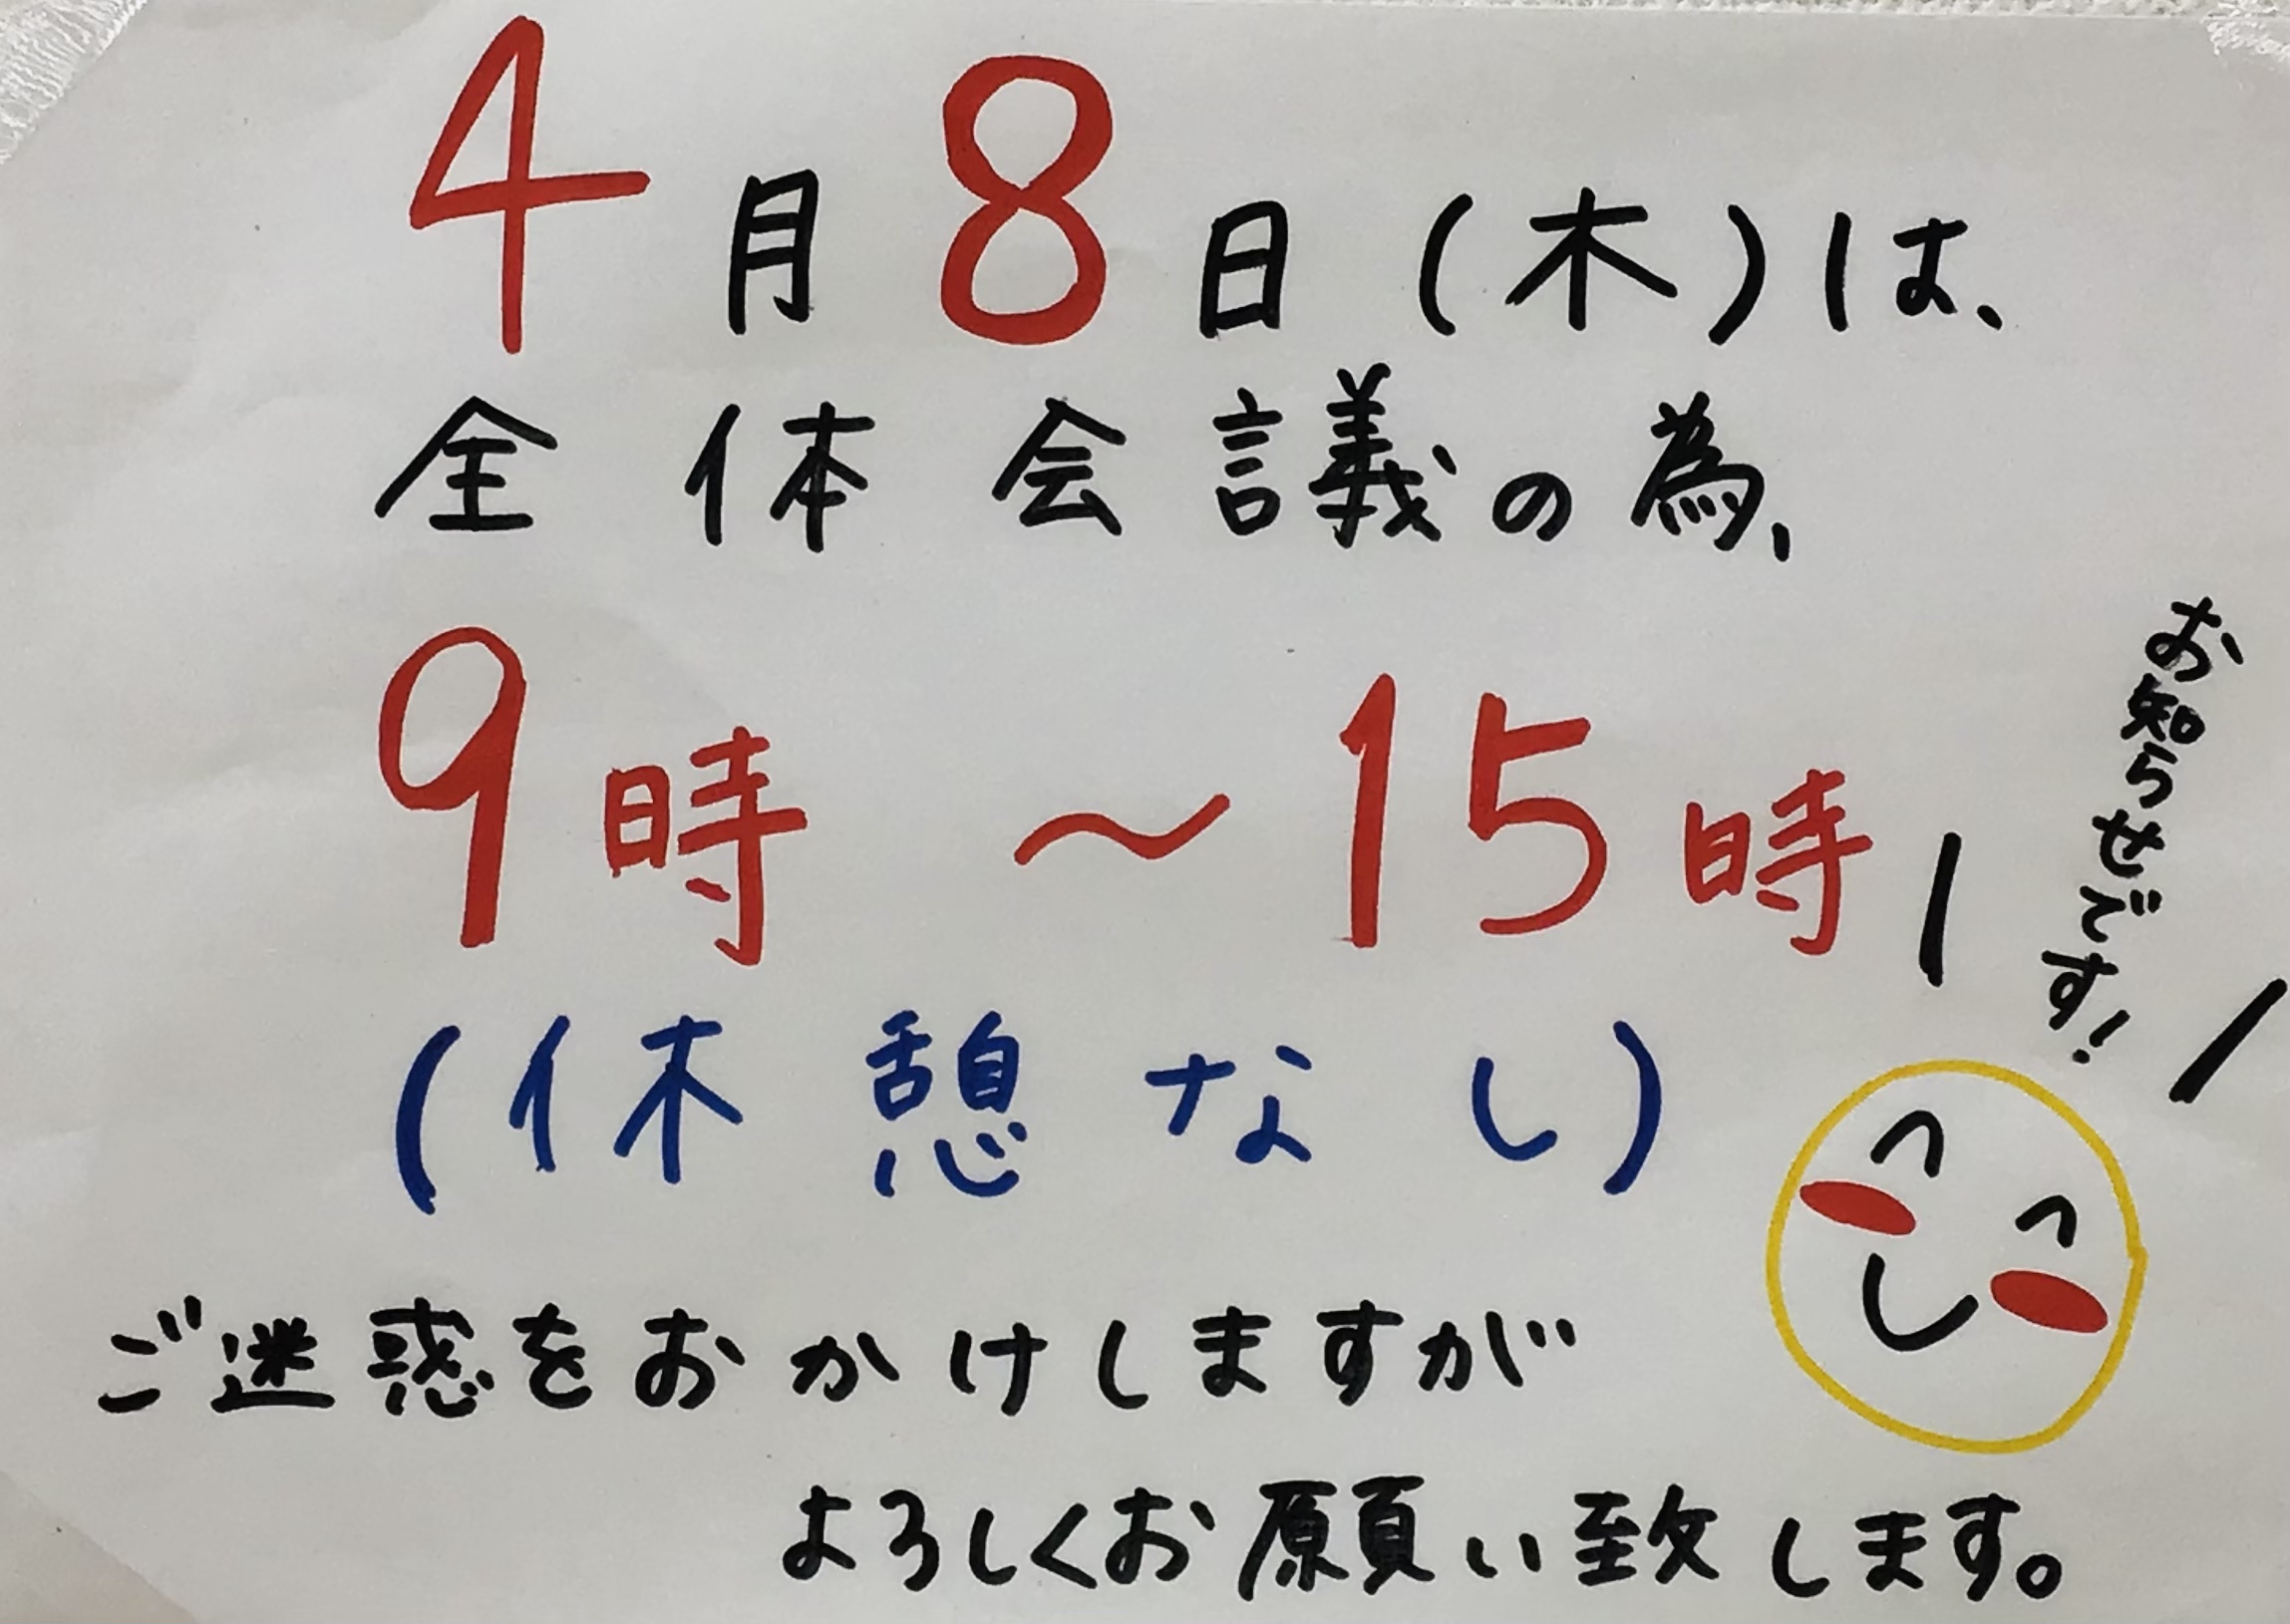 4月8日(木)は、
全体会議の為、
9時 〜 15時
(休憩なし)
お知らせです!
ご迷惑をおかけしますが
よろしくお願い致します。